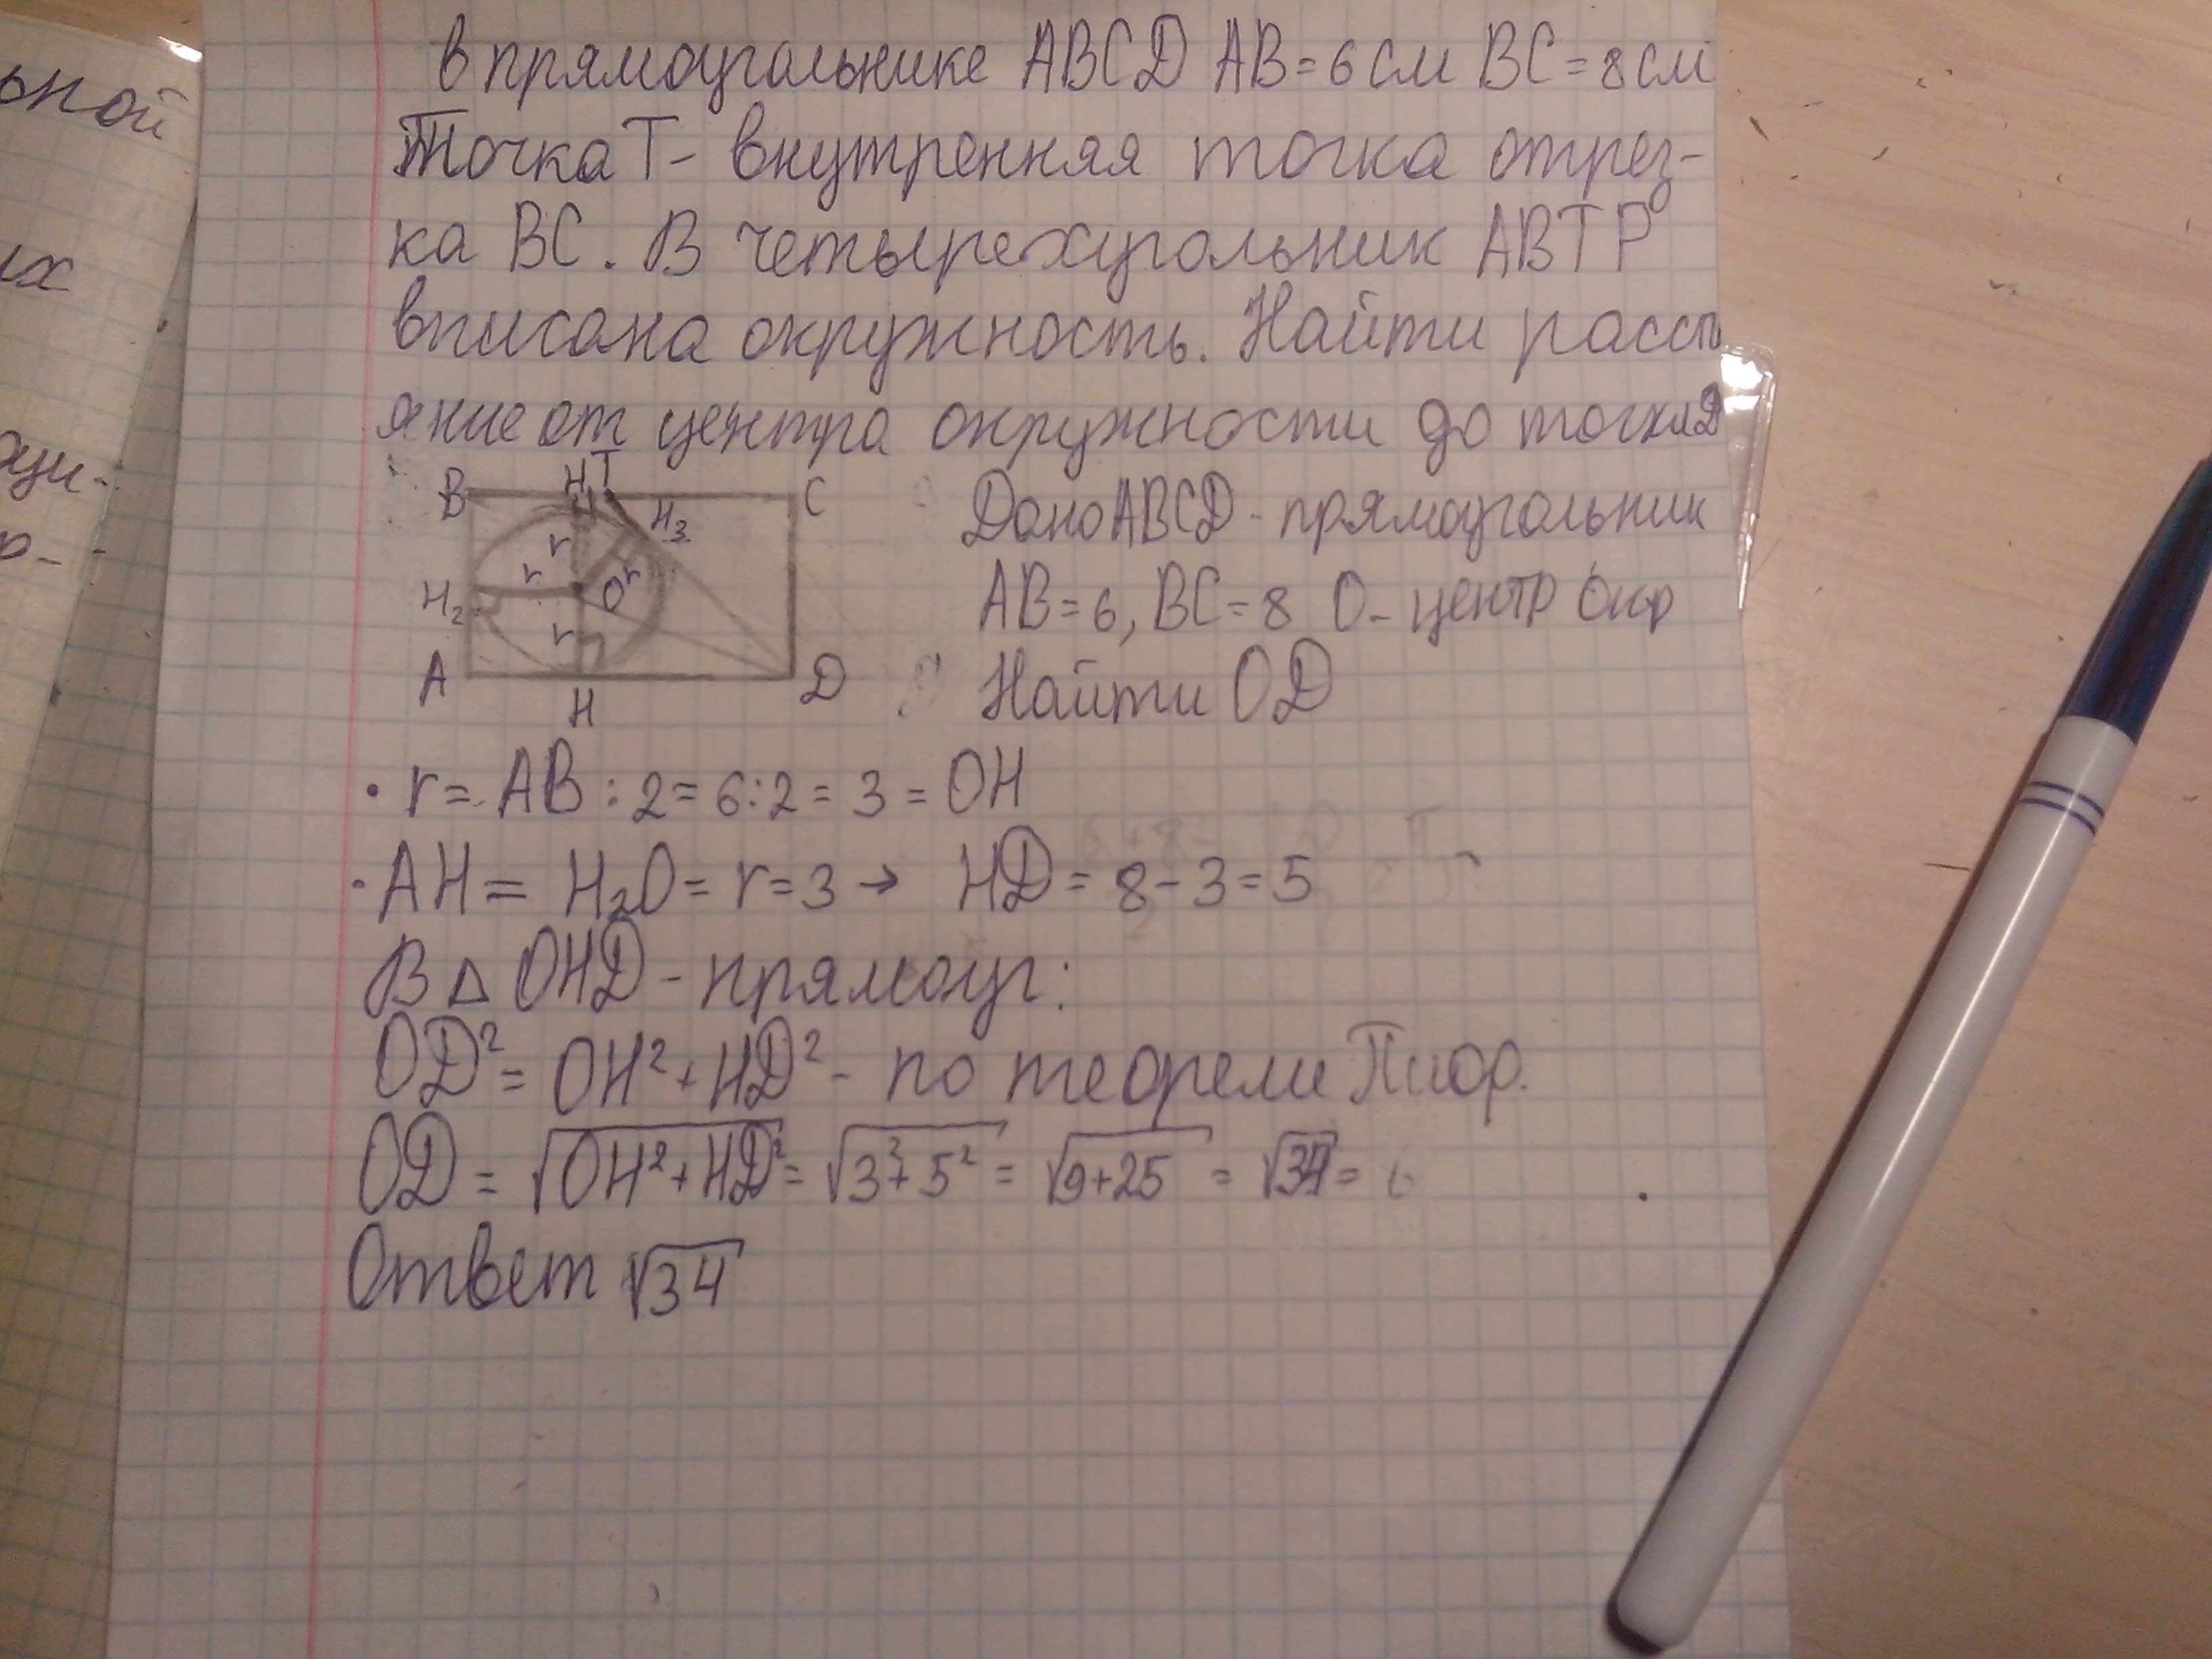 ьной
их
оци-
р-
В прямоугольнике ABCD AB=6см BC=8см
Точка Т- внутренняя точка отрез-
ка BC. В четырехугольник ABTP
вписана окружность. Найти расст
яние от центра окружности до точки D
B H₁ T C
H₃
r
r O r
H₂
r
A H D
Дано ABCD - прямоугольник
AB=6, BC=8 O- центр окр
Найти OD
• r= AB:2=6:2=3=OH
• AH= H₂O= r=3 → HD=8-3=5
В △ OHD - прямоуг:
OD²= OH²+HD² - по теореме
OD= √OH²+HD²= √3²+5² = √9+25 = √34 = 6
Ответ √34